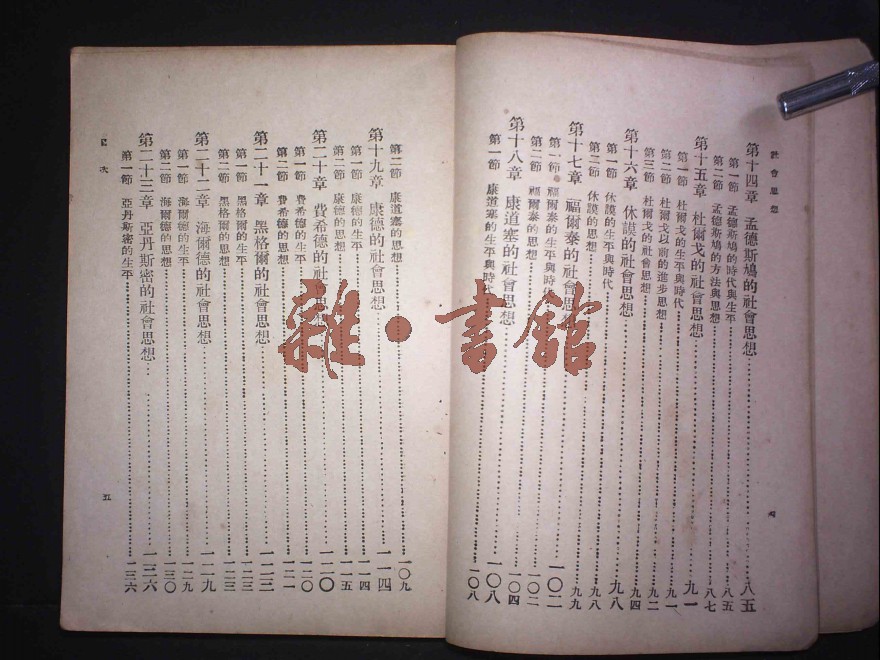 社會思想
第十四章 孟德斯鳩的社會思想……八五
第一節 孟德斯鳩的時代與生平……八五
第二節 孟德斯鳩的方法與思想……八七
第十五章 杜爾戈的社會思想……九一
第一節 杜爾戈的生平與時代……九一
第二節 杜爾戈以前的進步思想……九二
第三節 杜爾戈的社會思想……九四
第十六章 休謨的社會思想……九八
第一節 休謨的生平與時代……九八
第二節 休謨的思想……九九
第十七章 福爾泰的社會思想……一〇二
第一節 福爾泰的生平與時代……一〇二
第二節 福爾泰的思想……一〇四
第十八章 康道塞的社會思想……一〇八
第一節 康道塞的生平與時代……一〇八
四
第二節 康道塞的思想……一〇九
第十九章 康德的社會思想……一一四
第一節 康德的生平……一一四
第二節 康德的思想……一一五
第二十章 費希德的社會思想……一二〇
第一節 費希德的生平……一二〇
第二節 費希德的思想……一二一
第二十一章 黑格爾的社會思想……一二三
第一節 黑格爾的生平……一二三
第二節 黑格爾的思想……一二三
第二十二章 海爾德的社會思想……一二九
第一節 海爾德的生平……一二九
第二節 海爾德的思想……一三〇
第二十三章 亞丹斯密的社會思想……一三六
第一節 亞丹斯密的生平……一三六
目次
五
雜·書館